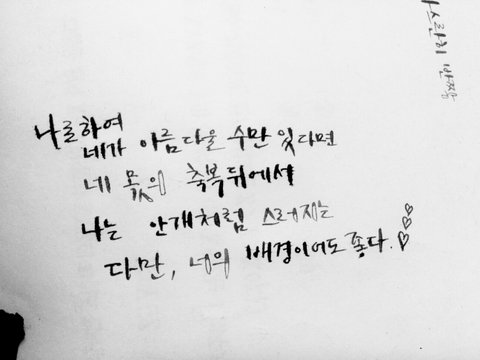 나로하여
네가 아름다울 수만 있다면
네 몫의 축복뒤에서
나는 안개처럼 스러지는
다만, 너의 배경이어도 좋다.